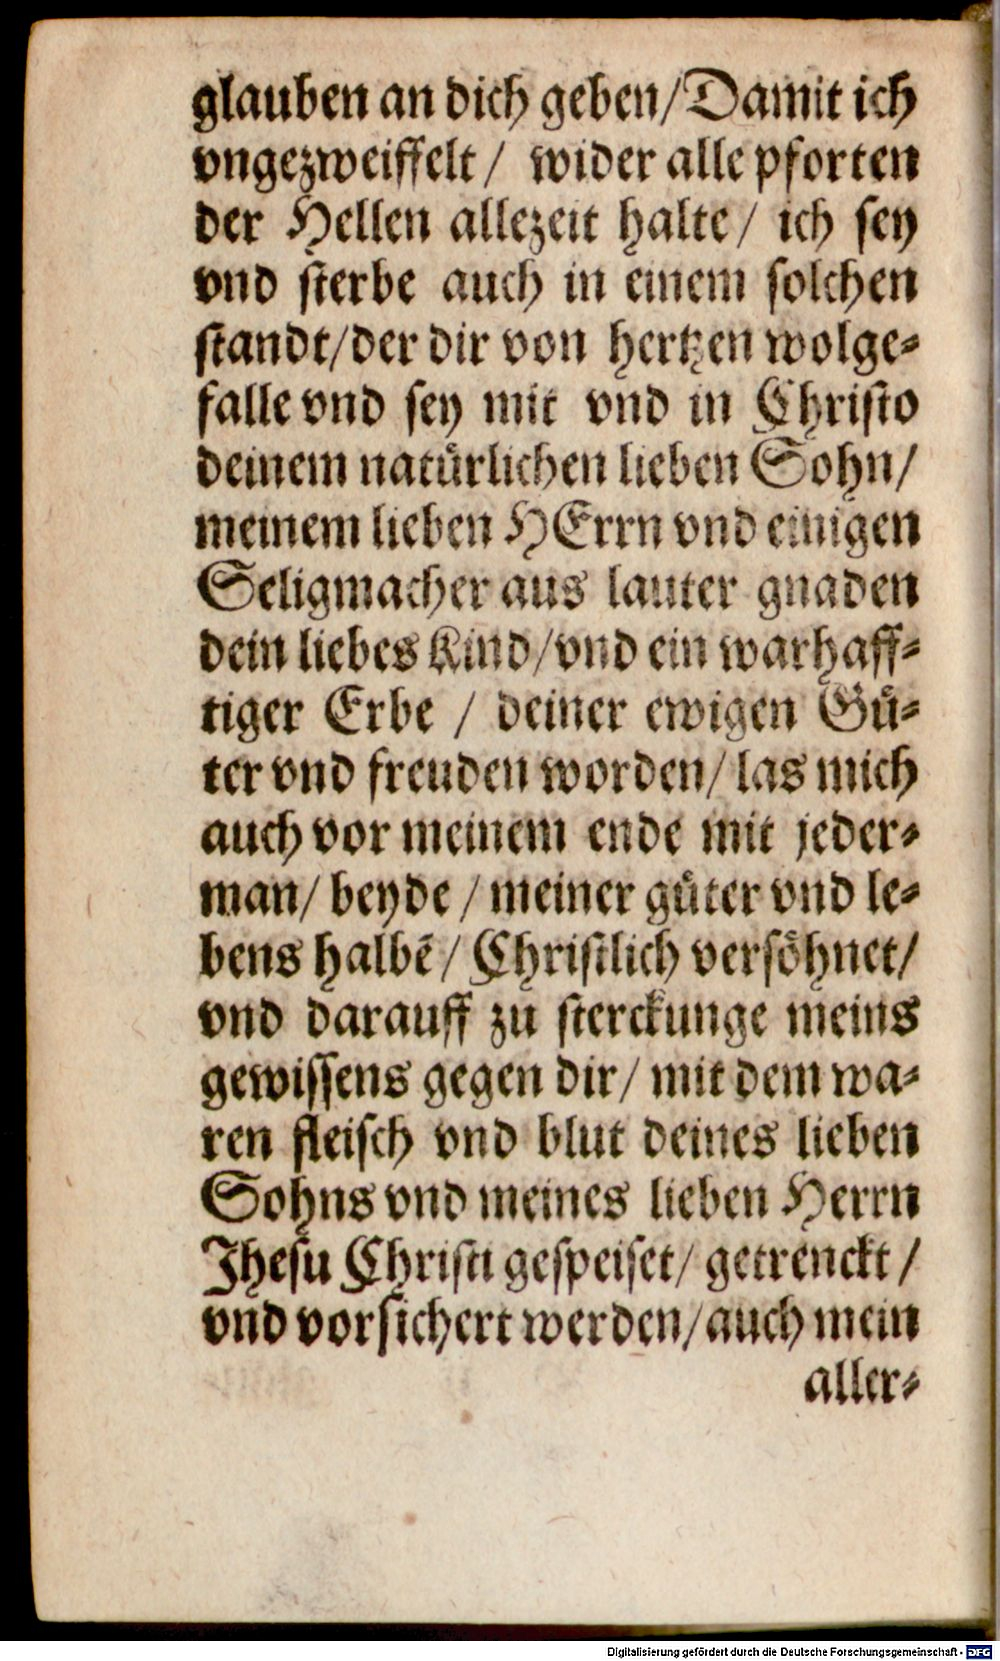 glauben an dich geben/Damit ich
vngezweiffelt/ wider alle pforten
der Hellen allezeit halte/ ich sey
vnd sterbe auch in einem solchen
standt/der dir von hertzen wolge-
falle vnd sey mit vnd in Christo
deinem natürlichen lieben Sohn/
meinem lieben HErrn vnd einigen
Seligmacher aus lauter gnaden
dein liebes Kind/vnd ein warhaff-
tiger Erbe / deiner ewigen Gü-
ter vnd freuden worden/ las mich
auch vor meinem ende mit jeder-
man/ beyde / meiner güter vnd le-
bens halbẽ/ Christlich versöhnet/
vnd darauff zu sterckunge meins
gewissens gegen dir/ mit dem wa-
ren fleisch vnd blut deines lieben
Sohns vnd meines lieben Herrn
Jhesu Christi gespeiset/ getrenckt /
vnd vorsichert werden/auch mein
aller-
Digitalisierung gefördert durch die Deutsche Forschungsgemeinschaft - DFG